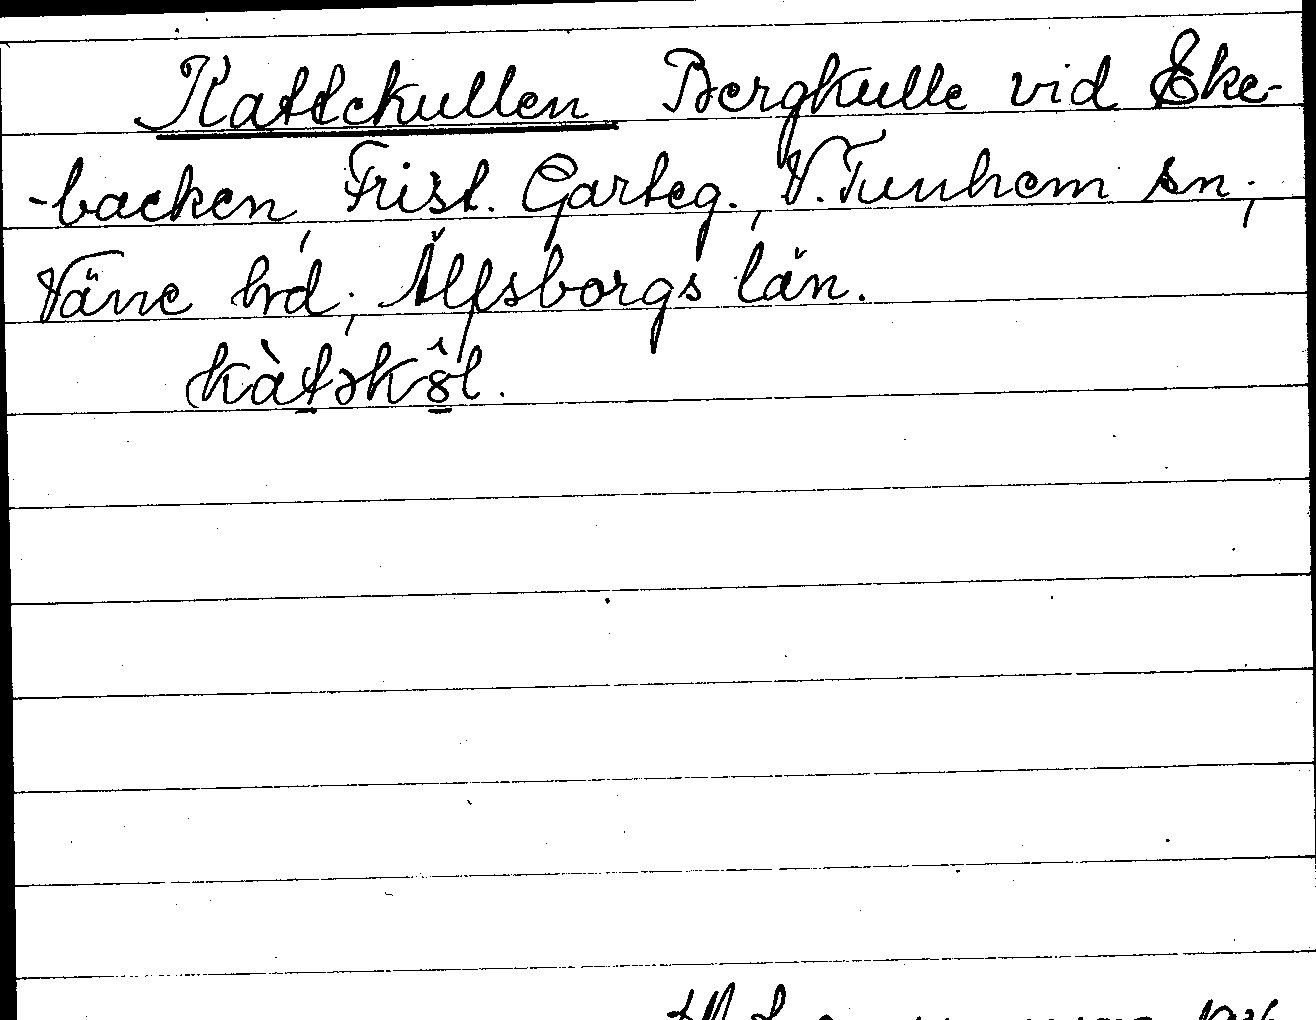 Kattekullen Bergkulle vid Eke-
-backen, Frist. Garteg., V. Tunhem sn,
Väne hd, Älfsborgs län.
kàtək8̂l.